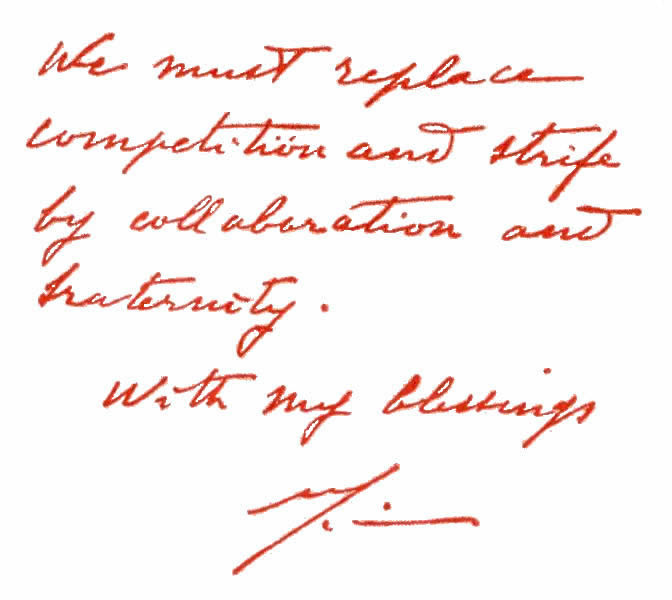 We must replace
competition and strife
by collaboration and
fraternity.
With my blessings